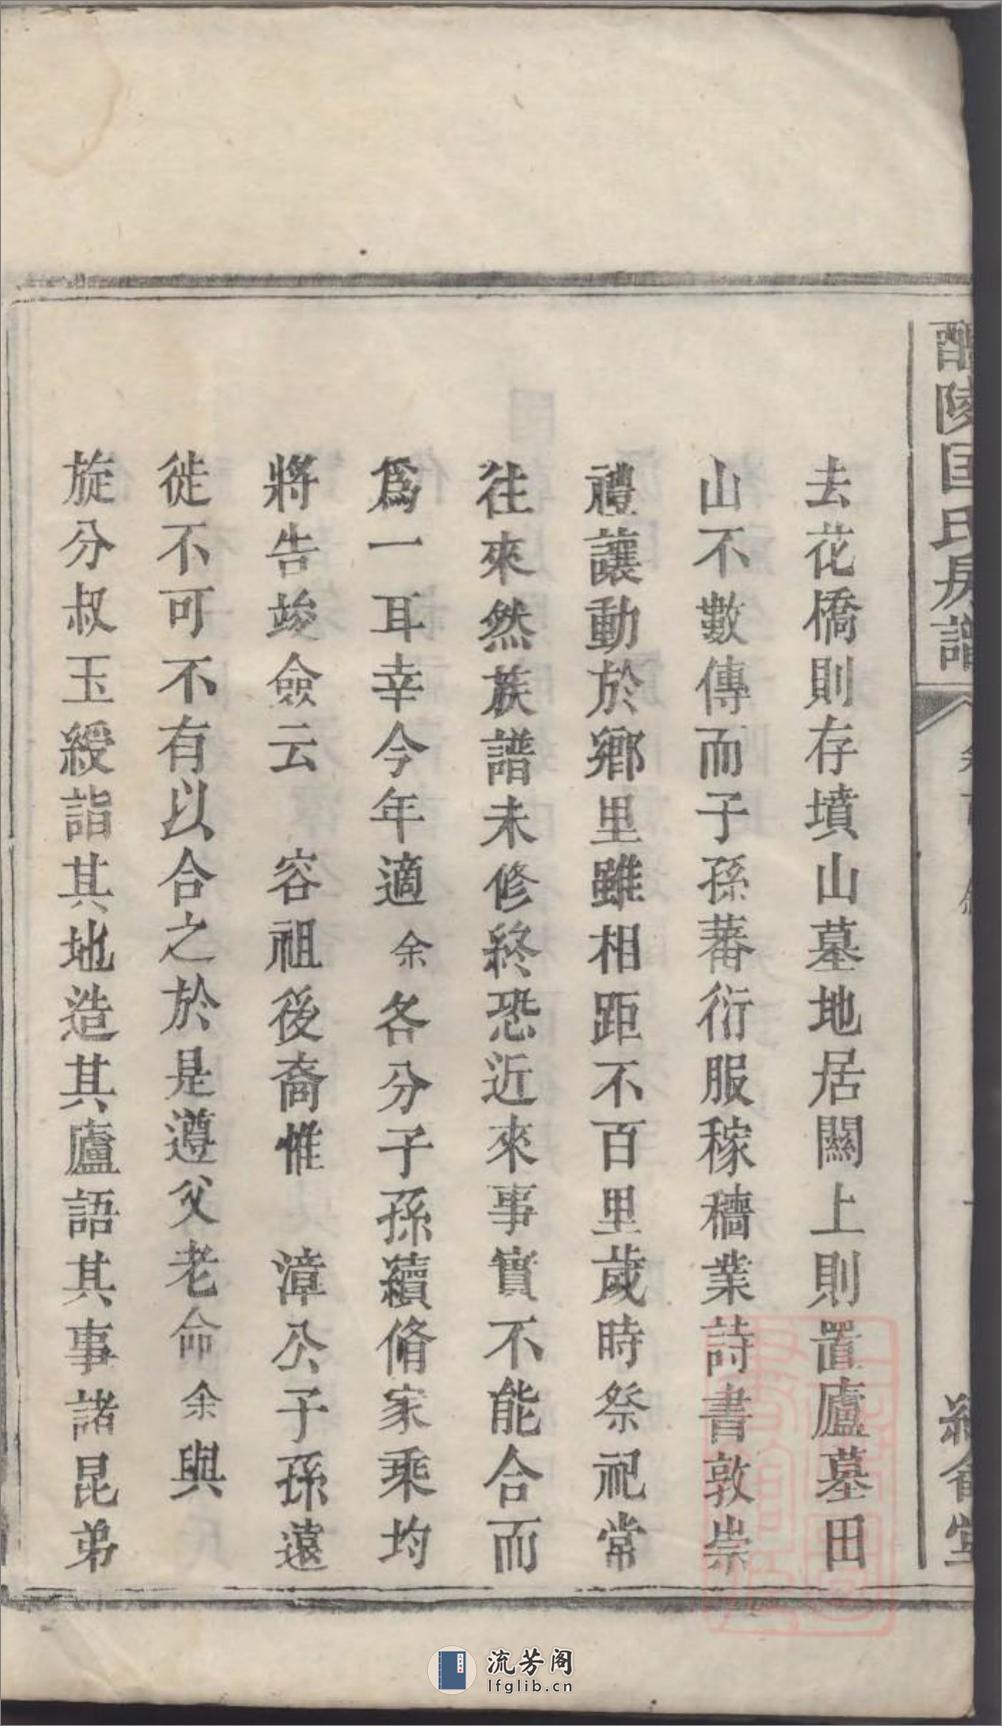 醴陵匡氏房譜
去花橋則存墳山墓地居關上則置廬墓田
山不數傳而子孫蕃衍服稼穡業詩書敦崇
禮讓動於鄉里雖相距不百里歲時祭祀常
往來然族譜未修終恐近來事實不能合而
爲一耳幸今年適余各分子孫續脩家乘均
將告竣僉云 容祖後裔惟 漳公子孫遠
徙不可不有以合之於是遵父老命余與
旋分叔玉綬詣其地造其廬語其事諸昆弟
流芳阁
lfglib.cn